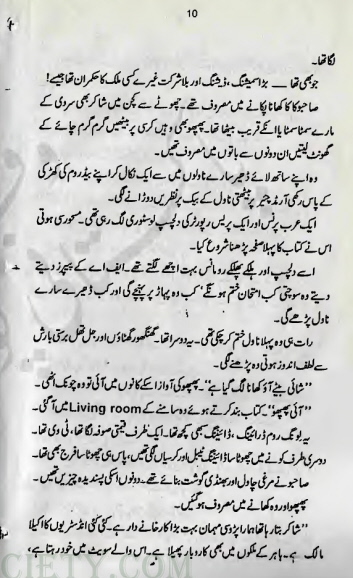 10
لگا تھا۔
جو بھی تھا ــــ بڑا سمیشنگ، ڈیشنگ اور بلا شرکت غیرے کسی ملک کا حکمران تھا جیسے!
صاحبو کا کھانا پکانے میں مصروف تھے۔ چھوٹے سے کچن میں شاکر بھی سردی کے
مارے سمٹا سمٹایا انکے قریب بیٹھا تھا۔ پھپھو بھی وہیں کرسی پر بیٹھیں گرم گرم چائے کے
گھونٹ لیتیں ان دونوں سے باتوں میں مصروف تھیں۔
وہ اپنے ساتھ لائے ڈھیر سارے ناولوں میں سے ایک نکال کر اپنے بیڈروم کی کھڑکی
کے پاس رکھی آرمڈ چیئر پر بیٹھتی ناول کے بیک پر نظریں دوڑانے لگی۔
ایک عرب پرنس اور ایک پریس رپورٹر کی دلچسپ لوسٹوری لگ رہی تھی۔ مسحور سی ہوتی
اس نے کتاب کا پہلا صفحہ پڑھنا شروع کیا۔
اسے دلچسپ اور ہلکے پھلکے رومانس بہت اچھے لگتے تھے۔ ایف اے کے پیپرز دیتے
دیتے وہ سوچتی کب امتحان ختم ہونگے' کب وہ پہاڑ پر پہنچے گی اور کب ڈھیر سارے
ناول پڑھے گی۔
رات ہی وہ پہلا ناول ختم کر چکی تھی۔ یہ دوسرا تھا۔ گھنگھور گھٹاؤں اور جل تھل برستی بارش
سے لطف اندوز ہوتی وہ پڑھنے لگی۔
"شائی بیٹے آؤ کھانا لگ گیا ہے"۔ پھپھو کی آواز اسکے کانوں میں آئی تو وہ چونک اٹھی۔
"آئی پھپھو"۔ کتاب بند کرتے ہوئے وہ سامنے کے Living room میں آ گئی۔
یہ بونک روم ڈرائینگ، ڈائیننگ بھی کچھ تھا۔ ایک طرف قیمتی صوفہ لگا تھا، ٹی وی تھا۔
دوسری طرف کونے میں چھوٹا سا ڈائیننگ ٹیبل اور کرسیاں لگی تھیں، پاس ہی چھوٹا سا فرج بھی تھا۔
صاحبو نے مرغی چاول اور بھنڈی گوشت بنائے تھے۔ دونوں اسکی پسندیدہ چیزیں تھیں۔
پھپھو اور وہ کھانے میں مصروف ہو گئیں۔
"شاکر بتا رہا تھا ہمارا پڑوسی مہمان بہت بڑا کارخانے دار ہے۔ کئی کئی انڈسٹریوں کا اکیلا
مالک ہے۔ باہر کے ملکوں میں بھی کاروبار پھیلا ہے۔ اس والے سویٹ میں خود رہتا ہے،
CIETY.COM